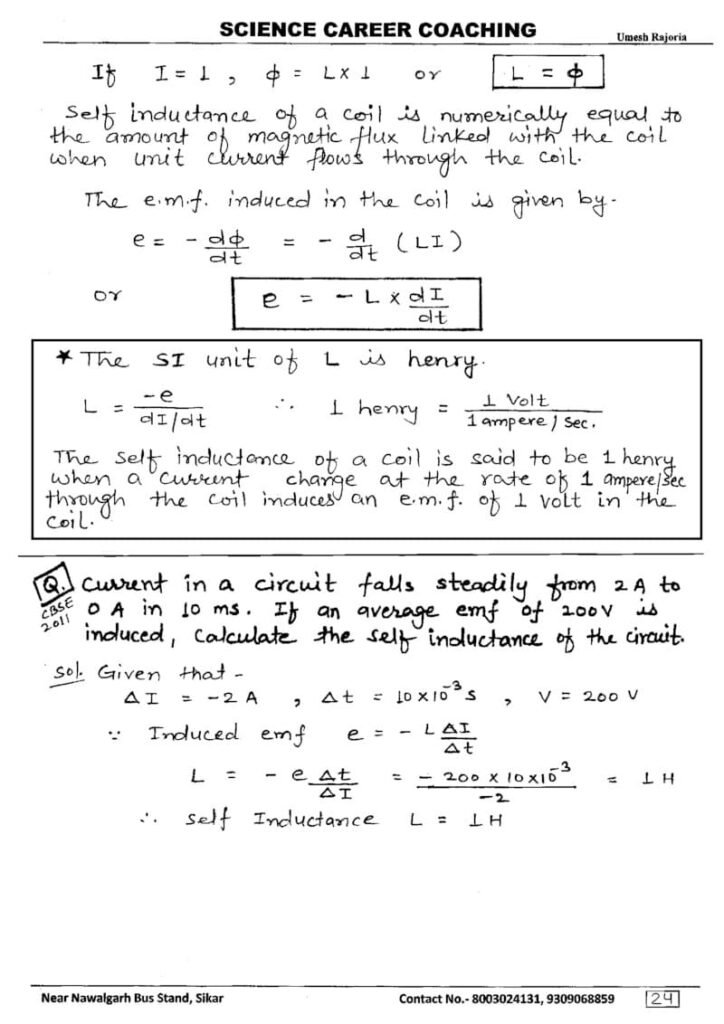 SCIENCE CAREER COACHING
Umesh Rajoria
If I = 1 , φ = L×1 or L = φ
Self inductance of a coil is numerically equal to
the amount of magnetic flux linked with the coil
when unit current flows through the coil.
The e.m.f. induced in the coil is given by-
e = - dφ/dt = - d/dt (LI)
or e = - L × dI/dt
* The SI unit of L is henry.
L = -e / dI/dt ∴ 1 henry = 1 Volt / 1 ampere/sec.
The self inductance of a coil is said to be 1 henry
when a current change at the rate of 1 ampere/sec
through the coil induces an e.m.f. of 1 volt in the
coil.
Q. Current in a circuit falls steadily from 2A to
CBSE 2011
0 A in 10 ms. If an average emf of 200V is
induced, calculate the self inductance of the circuit.
Sol. Given that -
ΔI = -2 A , Δt = 10×10⁻³ s , V = 200 V
∵ Induced emf e = - L ΔI/Δt
L = - e Δt/ΔI = - 200 × 10×10⁻³ / -2 = 1 H
∴ self Inductance L = 1 H
Near Nawalgarh Bus Stand, Sikar
Contact No.- 8003024131, 9309068859
24